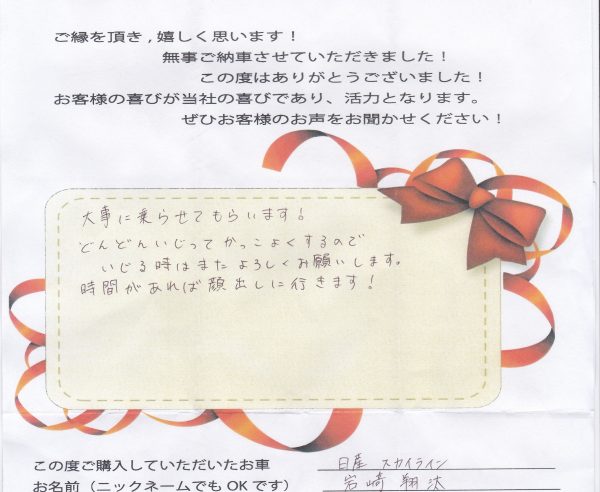 ご縁を頂き,嬉しく思います!
無事ご納車させていただきました!
この度はありがとうございました!
お客様の喜びが当社の喜びであり、活力となります。
ぜひお客様のお声をお聞かせください!
大事に乗らせてもらいます!
どんどんいじってかっこよくするので
いじる時はまたよろしくお願いします。
時間があれば顔出しに行きます!
この度ご購入していただいたお車 日産 スカイライン
お名前(ニックネームでもOKです) 岩崎 翔汰